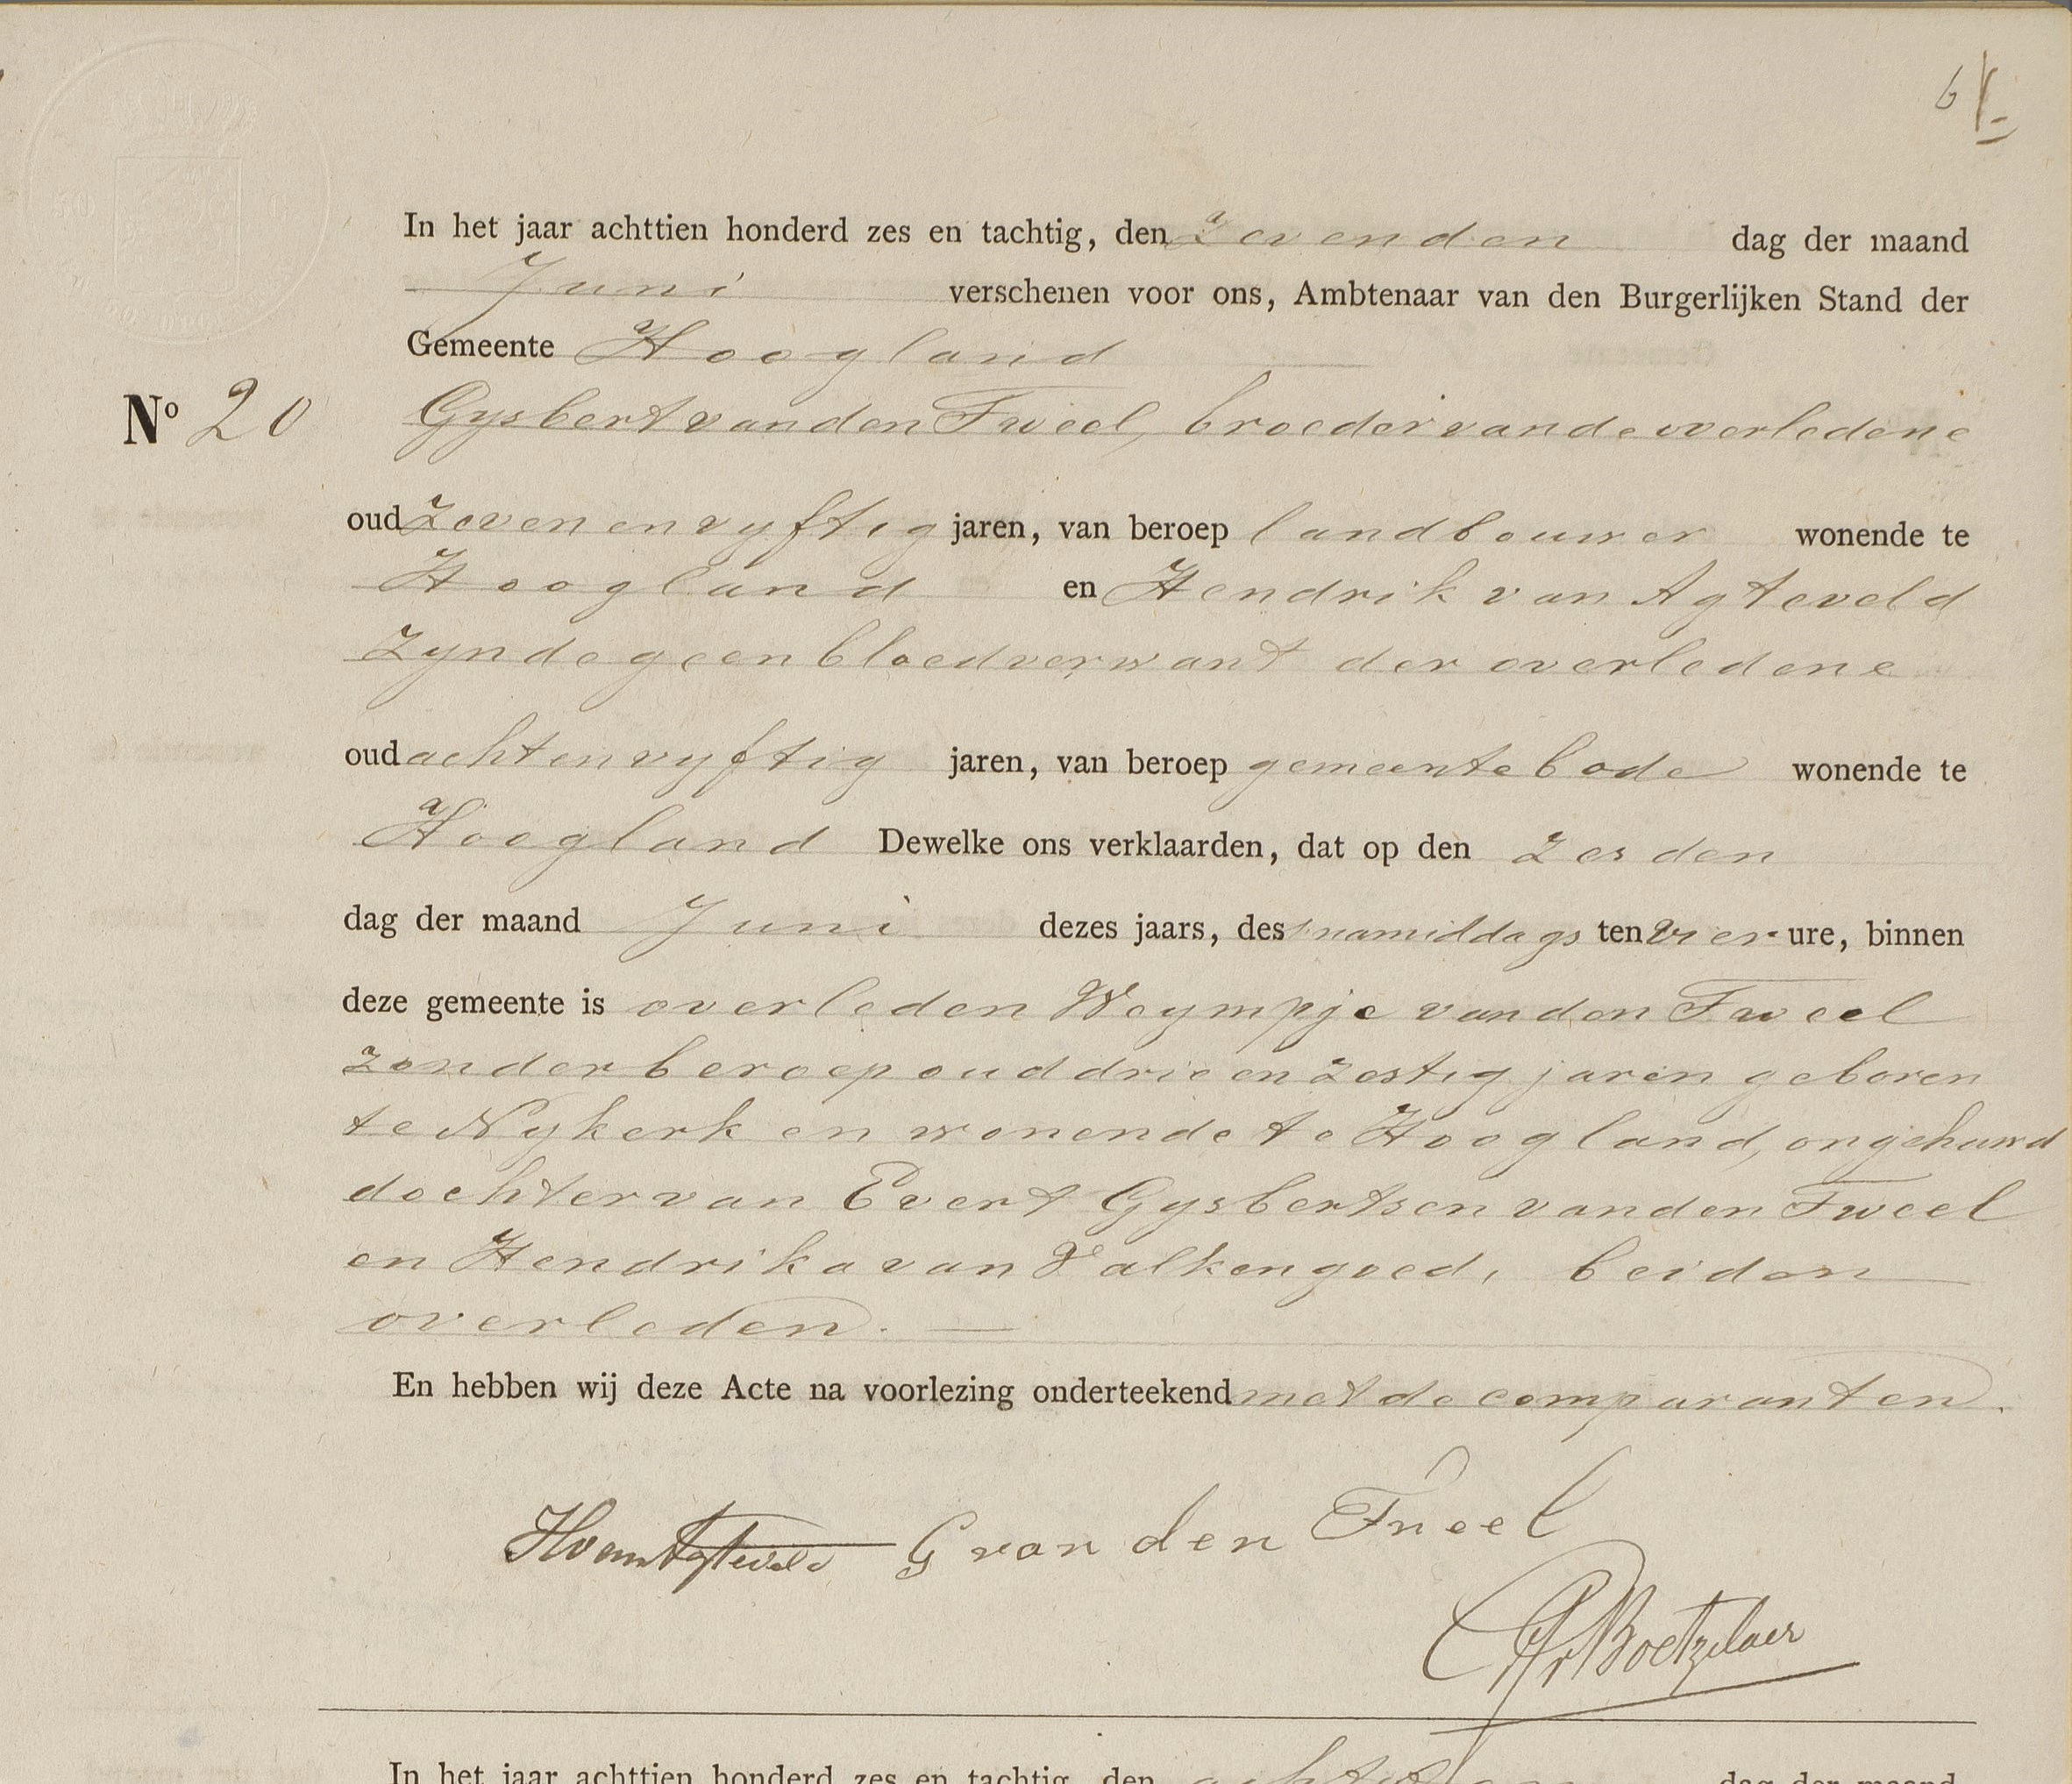 6
In het jaar achttien honderd zes en tachtig, den zevenden dag der maand
Juni verschenen voor ons, Ambtenaar van den Burgerlijken Stand der
Gemeente Hoogland
No 20 Gysbert van den Tweel, broeder van de overledene
oud zeven en vyftig jaren, van beroep landbouwer wonende te
Hoogland en Hendrik van Agteveld
zynde geen bloedverwant der overledene
oud acht en vyftig jaren, van beroep gemeentebode wonende te
Hoogland Dewelke ons verklaarden, dat op den zesden
dag der maand Juni dezes jaars, des namiddags ten vier ure, binnen
deze gemeente is overleden Weympje van den Tweel
zonder beroep oud drie en zestig jaren geboren
te Nykerk en wonende te Hoogland, ongehuwd
dochter van Evert Gysbertsen van den Tweel
en Hendrika van Valkengoed, beiden
overleden.
En hebben wij deze Acte na voorlezing onderteekend met de comparanten.
HvanAgteveld G van den Tweel
Boetzelaer
In het jaar achttien honderd zes en tachtig, den dag der maand